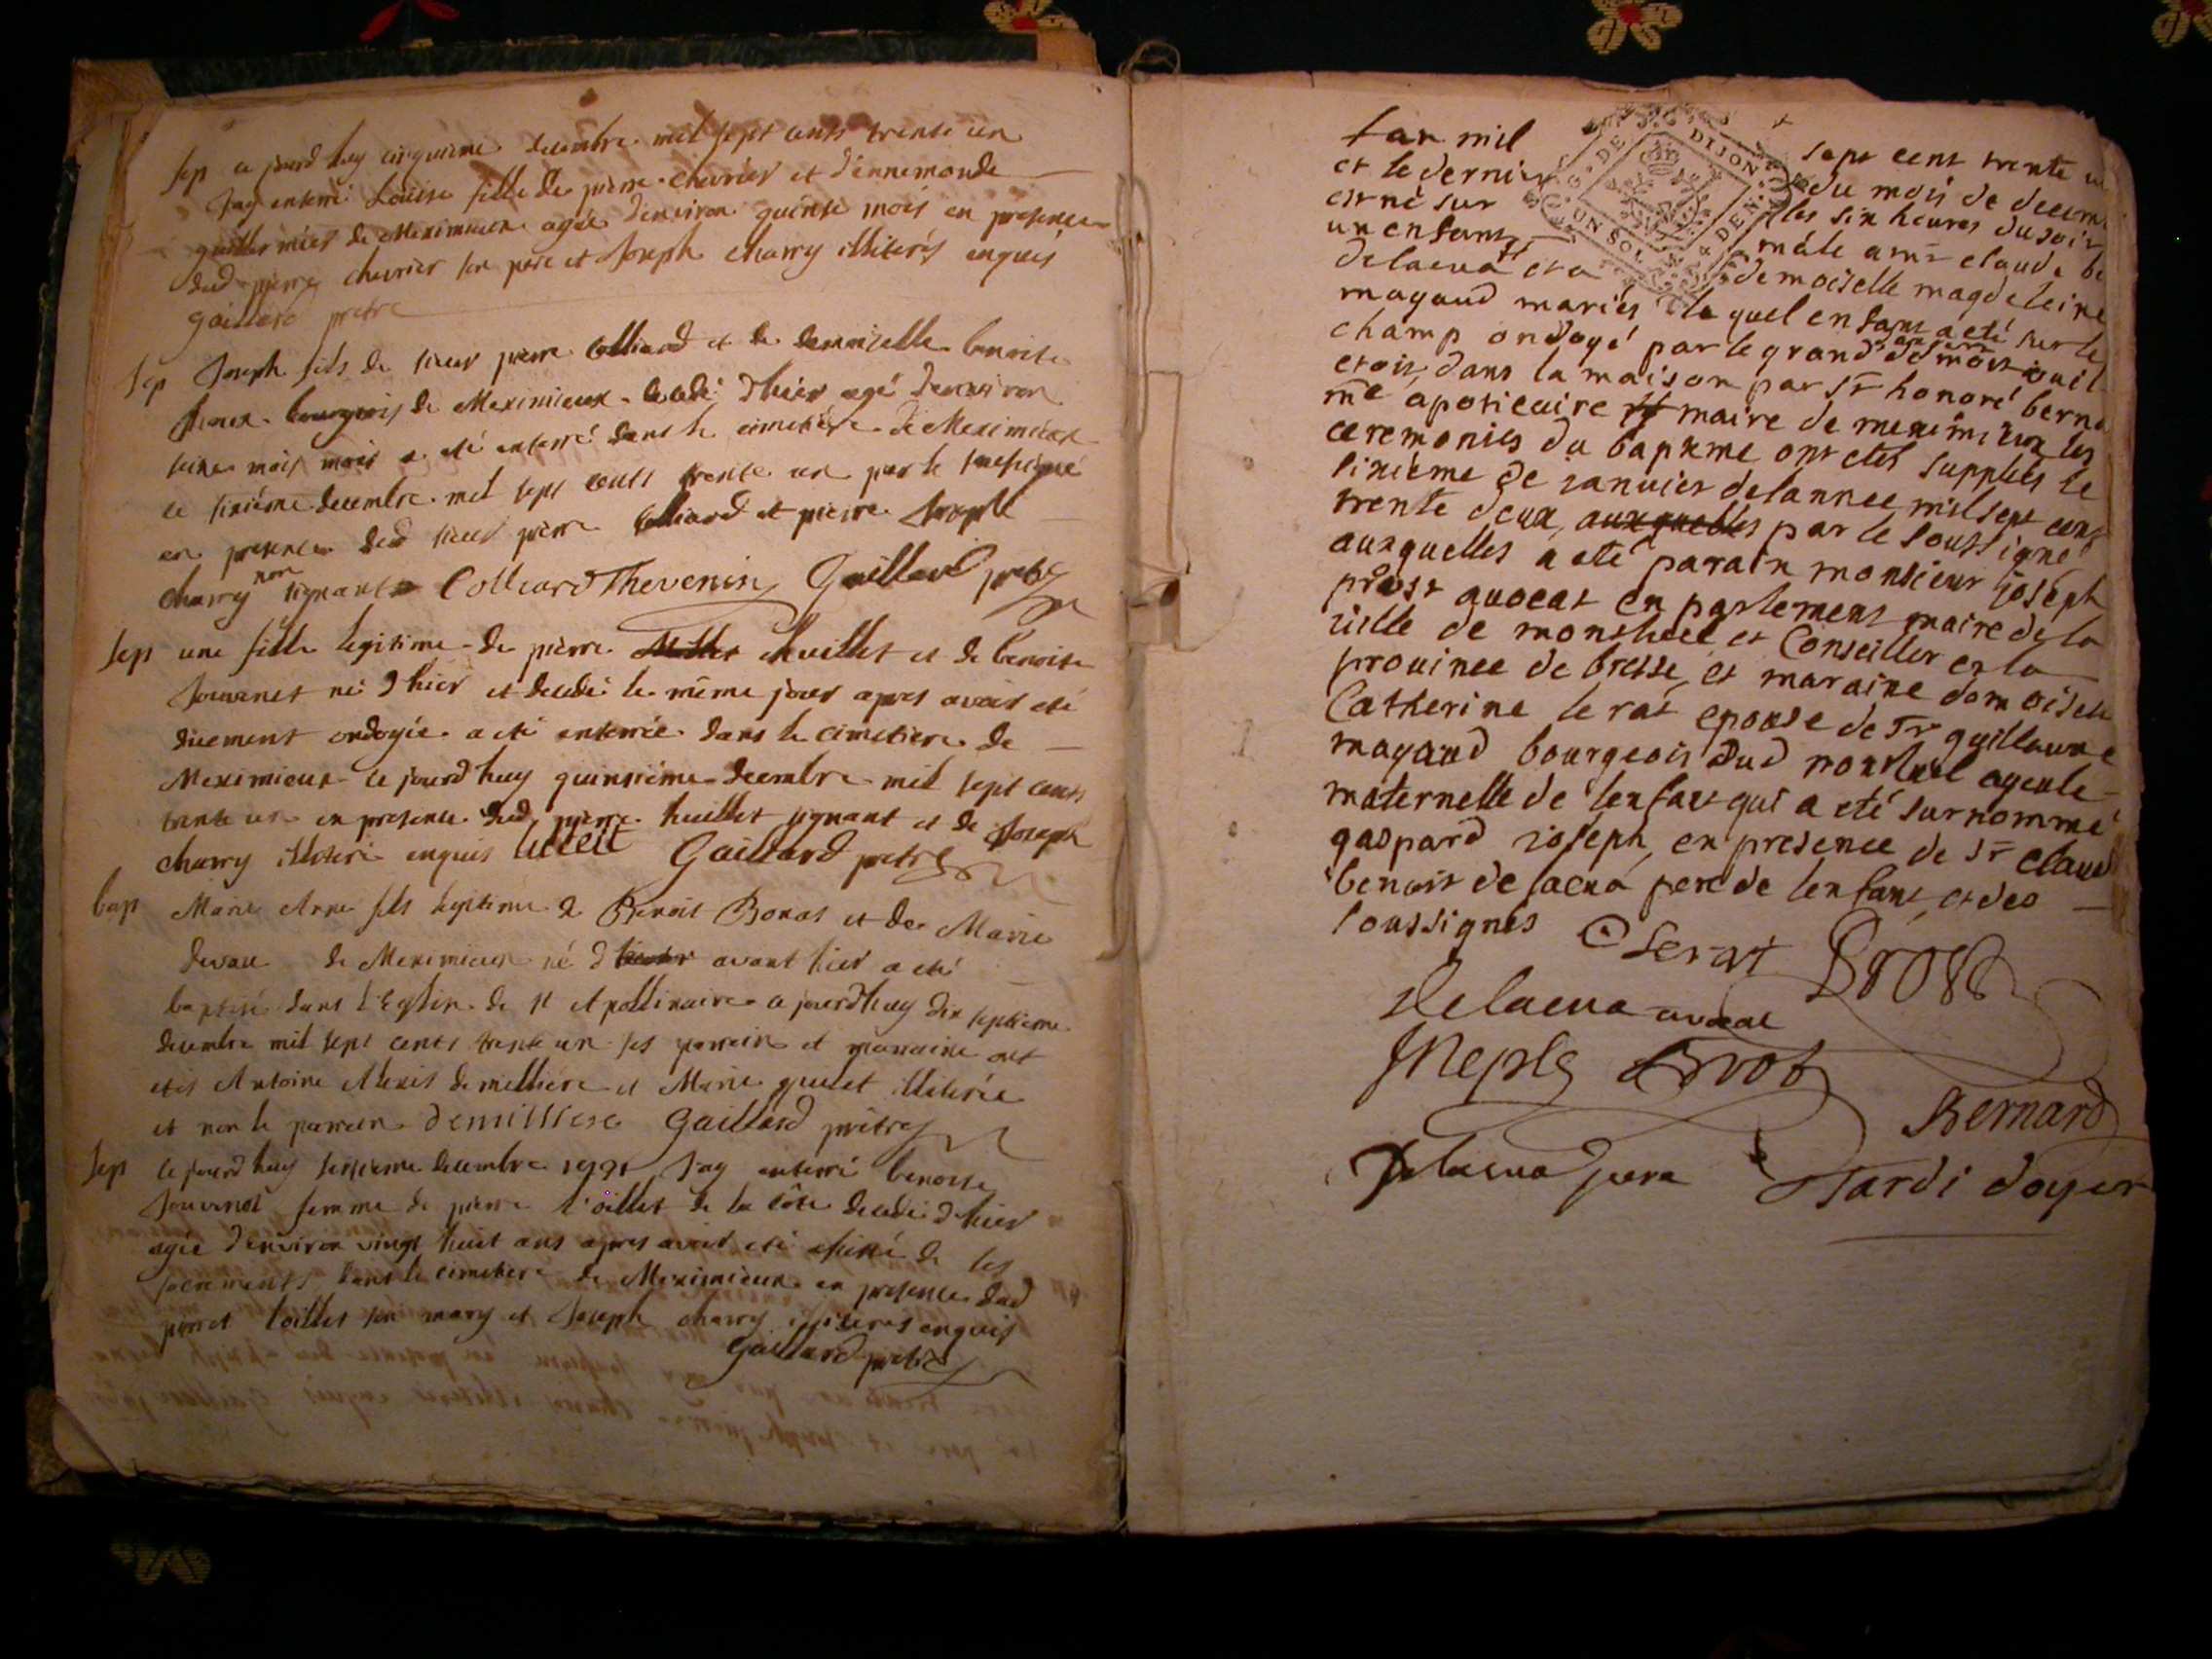 sep ce jourd huy cinquieme decembre mil sept cents trente un
Jay enterré Louise fille de pierre chevrier et d'ennemonde
guillermier de Meximieux agée d'environ quinse mois en presence
dud pierre chevrier son pere et Joseph charry illiterés enquis
Gaillard pretre
sep Joseph fils de sieur pierre Colliard et de demoiselle benoite
bourgeois de Meximieux decedé d'hier agé d'environ
mois mois a eté enterré dans le cimetière de Meximieux
ce sixiéme decembre mil sept cents trente un par le soussigné
en presence dud sieur pierre Colliard et pierre Joseph
charry non signant Colliard Thevenin Gaillard pretre
sep une fille legitime de pierre huillet et de benoite
Jouvenet né d'hier et decedé le même jour apres avoir eté
düement ondoyée a eté enterrée dans le cimetiere de
Meximieux ce jourd huy quinsiéme decembre mil sept cents
trente un en presence dud pierre huillet signant et de Joseph
charry illiteré enquis Gaillard pretre
bap Marie Anne fils legitime de Benoit Bonas et de Marie
devau de Meximieux né d avant hier a eté
baptisé dans l'Eglise de st Apollinaire ce jourd huy dix septieme
decembre mil sept cents trente un ses parrain et marraine ont
etés Antoine Alexis demilliere et Marie guelet illiterée
et non le parrain Demilliere Gaillard prêtre
sep ce jourd huy decembre 1731 Jay enterré benoite
Jouvenet femme de pierre l'oillet de la côte decedé d'hier
agée d'environ vingt huit ans apres avoir eté de ses
sacrements dans le cimetiere de Meximieux en presence dud
pierre loillet son mary et Joseph charry illiteres enquis
Gaillard pretre
G. DE DIJON
UN SOL 4 DEN.
lan mil sept cent trente un
et le dernier du mois de decem
est né sur les six heures du soir
un enfant mâle a mr claude be
delacua et a demoiselle magdeleine
magaud mariés le quel enfant a eté sur le
champ ondoyé par le grand danger de mort ou il
etoit, dans la maison par sr honoré berna
me apoticaire maire de meximieux les
ceremonies du baptème ont etés supplées le
sixiéme de janvier de lannee mil sept cent
trente deux, auxquelles par le soussigné
auxquelles a eté parain monsieur joseph
prost avocat en parlement maire de la
ville de montluel et Conseiller en la
province de bresse, et maraine damoiselle
Catherine lerat epouse de Sr guillaume
magaud bourgeois dud montluel ayeule
maternelle de l'enfant qui a eté surnommé
gaspard joseph, en presence de sr claude
benoit de lacua pere de l'enfant, et des
soussignés C Lerat Prost
Delacua avocat
Bernard
Delacua pere Tardi doyen